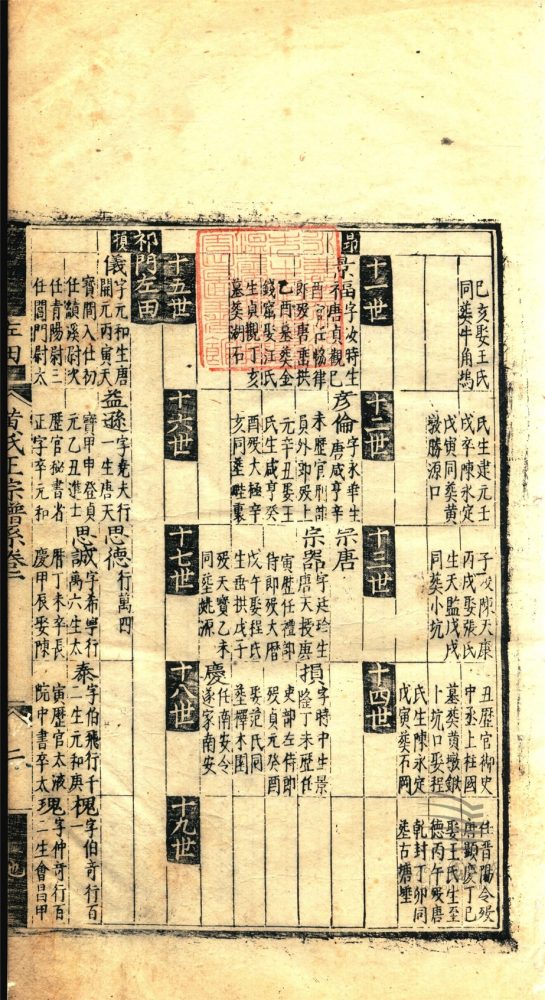 巳亥娶王氏
同葬牛角塢
氏生建元壬
戌辛陳永定
戊寅同葬黄
墩勝源口
丙戌娶張氏
生天監戊戌
同葬小坑
丑歷官御史
中丞上柱國
墓葬黄墩
卜坑口娶程
氏生陳永定
戊寅葬
任晋陽令殁
唐顯慶丁巳
娶王氏生至
德丙午殁唐
乾封丁卯同
塟古塘
十一世
十二世
十三世
十四世
昴
景福字汝時生
唐貞觀巳
彦倫字永華生
唐咸亨辛
未歷官刑部
員外郎殁上
元辛丑娶王
氏生咸亨癸
酉殁太極辛
亥同塟
宗唐
宗器字廷珍生
唐天授庚
寅歷任禮部
侍郎殁大暦
戊午娶程氏
生垂拱戊子
殁天寶乙未
同塟
損字時中生景
隆丁未歷任
吏部左侍郎
殁貞元癸酉
娶范氏同
塟禪木園
慶任南安令
遂家南安
十五世
十六世
十七世
十八世
十九世
祁門左田
損
儀字元和生唐
開元丙寅天
寶間入仕初
任績溪尉次
任青陽尉三
任閶門尉太
益遜字堯夫行
一生唐天
寶甲申登貞
元乙丑進士
歷官秘書省
正字卒元和
思德行萬四
思誠字希學行
萬六生太
暦丁未卒長
慶甲辰娶陳
泰字伯飛行千
二生元和庚
寅歷官太液
院中書卒太
槐字伯奇行百
一
瑰字仲奇行百
二生會昌甲
左田
黄氏正宗譜系卷二
二